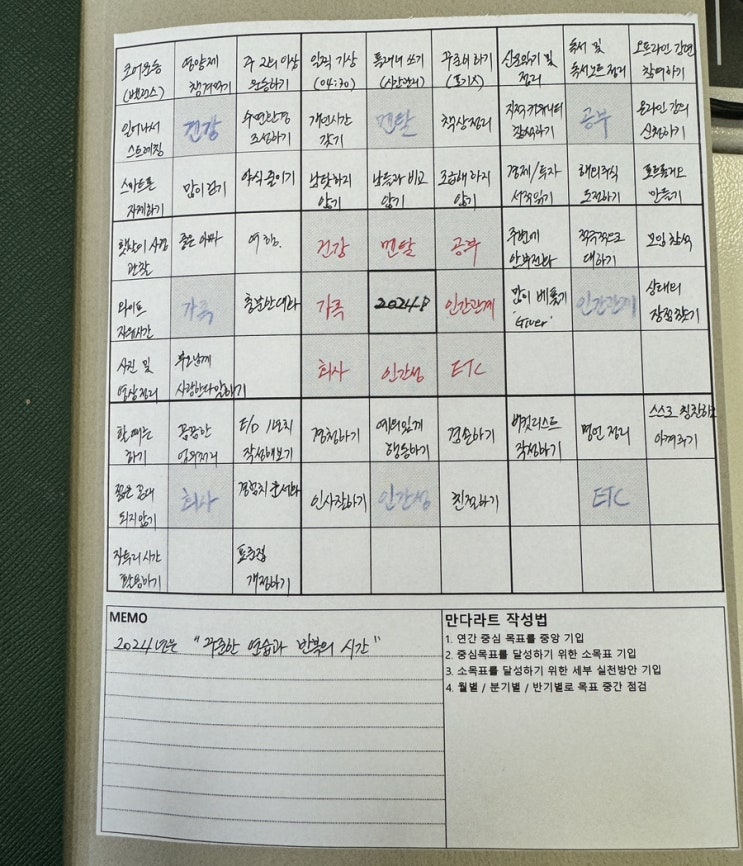 코어운동 영양제 주 2회 이상 일찍 기상 플래너 쓰기 꾸준히 하기 신문읽기 및 독서 및 오프라인 강연
(밸런스) 챙겨먹기 운동하기 (04:30) (시간관리) (포기X) 정리 독서노트 정리 참여하기
일어나서 건강 수면환경 개인시간 멘탈 책상정리 공부 온라인 강의
스트레칭 조성하기 갖기 참석하기 신청하기
스마트폰 많이 걷기 야식 줄이기 남탓하지 남들과 비교 조급해 하지 경제/투자 포트폴리오
자제하기 않기 않기 않기 서적읽기 도전하기 만들기
좋은 아빠 여행. 건강 멘탈 공부 주변에 적극적으로 모임 참석
관찰 안부전화 대하기
와이프 가족 충분한 대화 가족 2024.8 인간관계 많이 베풀기 인간관계 상대의
자유시간 "Giver" 장점 찾기
사진 및 부모님께 회사 인간성 ETC
영상정리 사랑한다 말하기
할 때는 꼼꼼한 경청하기 예의있게 겸손하기 버킷리스트 명언 정리 스스로 칭찬하고
하기 업무처리 작성해보기 행동하기 작성하기 아껴주기
젊은 꼰대 회사 인사잘하기 인간성 친절하기 ETC
되지않기
자투리 시간 표준점
활용하기 개정하기
MEMO
2024년은 "꾸준한 연습과 반복의 시간"
만다라트 작성법
1. 연간 중심 목표를 중앙 기입
2. 중심목표를 달성하기 위한 소목표 기입
3. 소목표를 달성하기 위한 세부 실천방안 기입
4. 월별 / 분기별 / 반기별로 목표 중간 점검